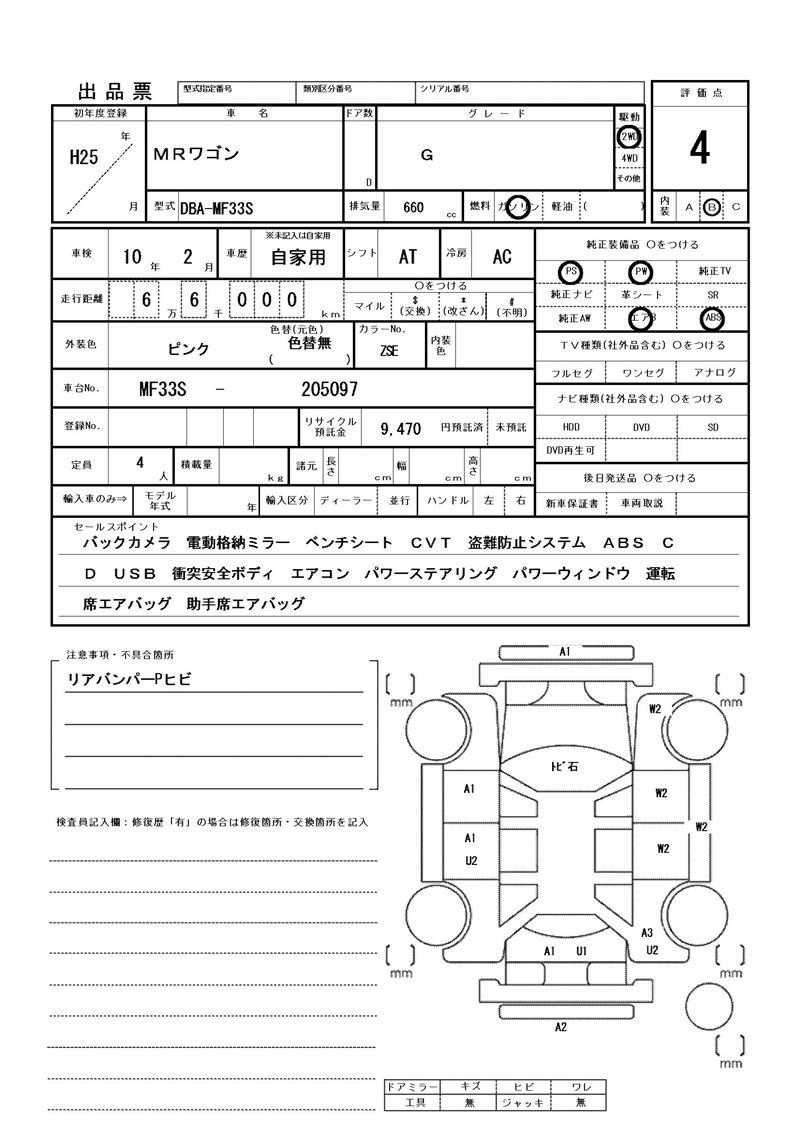 出品票 型式指定番号 類別区分番号 シリアル番号
評価点
初年度登録 車名 ドア数 グレード 駆動
H25 年 月
MRワゴン
D
G
2WD
4WD
その他
4
型式 DBA-MF33S 排気量 660 cc 燃料 ガソリン 軽油 ( )
内装 A B C
車検 10 年 2 月 車歴 ※未記入は自家用 自家用 シフト AT 冷房 AC
走行距離 6 万 6 千 000 km
〇をつける
マイル $(交換) *(改ざん) #(不明)
外装色 ピンク 色替(元色) 色替無 ( ) カラーNo. ZSE 内装色
車台No. MF33S - 205097
登録No. リサイクル預託金 9,470 円預託済 未預託
定員 4 人 積載量 kg 諸元 長さ cm 幅 cm 高さ cm
輸入車のみ⇒ モデル年式 年 輸入区分 ディーラー 並行 ハンドル 左 右
純正装備品 〇をつける
PS PW 純正TV
純正ナビ 革シート SR
純正AW エアB ABS
TV種類(社外品含む) 〇をつける
フルセグ ワンセグ アナログ
ナビ種類(社外品含む) 〇をつける
HDD DVD SD
DVD再生可
後日発送品 〇をつける
新車保証書 車両取説
セールスポイント
バックカメラ 電動格納ミラー ベンチシート CVT 盗難防止システム ABS C
D USB 衝突安全ボディ エアコン パワーステアリング パワーウィンドウ 運転
席エアバッグ 助手席エアバッグ
注意事項・不具合箇所
リアバンパーPヒビ
検査員記入欄:修復歴「有」の場合は修復箇所・交換箇所を記入
A1
mm mm
W2
トビ石
A1 W2
W2
A1 W2
U2
A3
A1 U1 U2
mm mm
A2
mm
ドアミラー キズ ヒビ ワレ
工具 無 ジャッキ 無